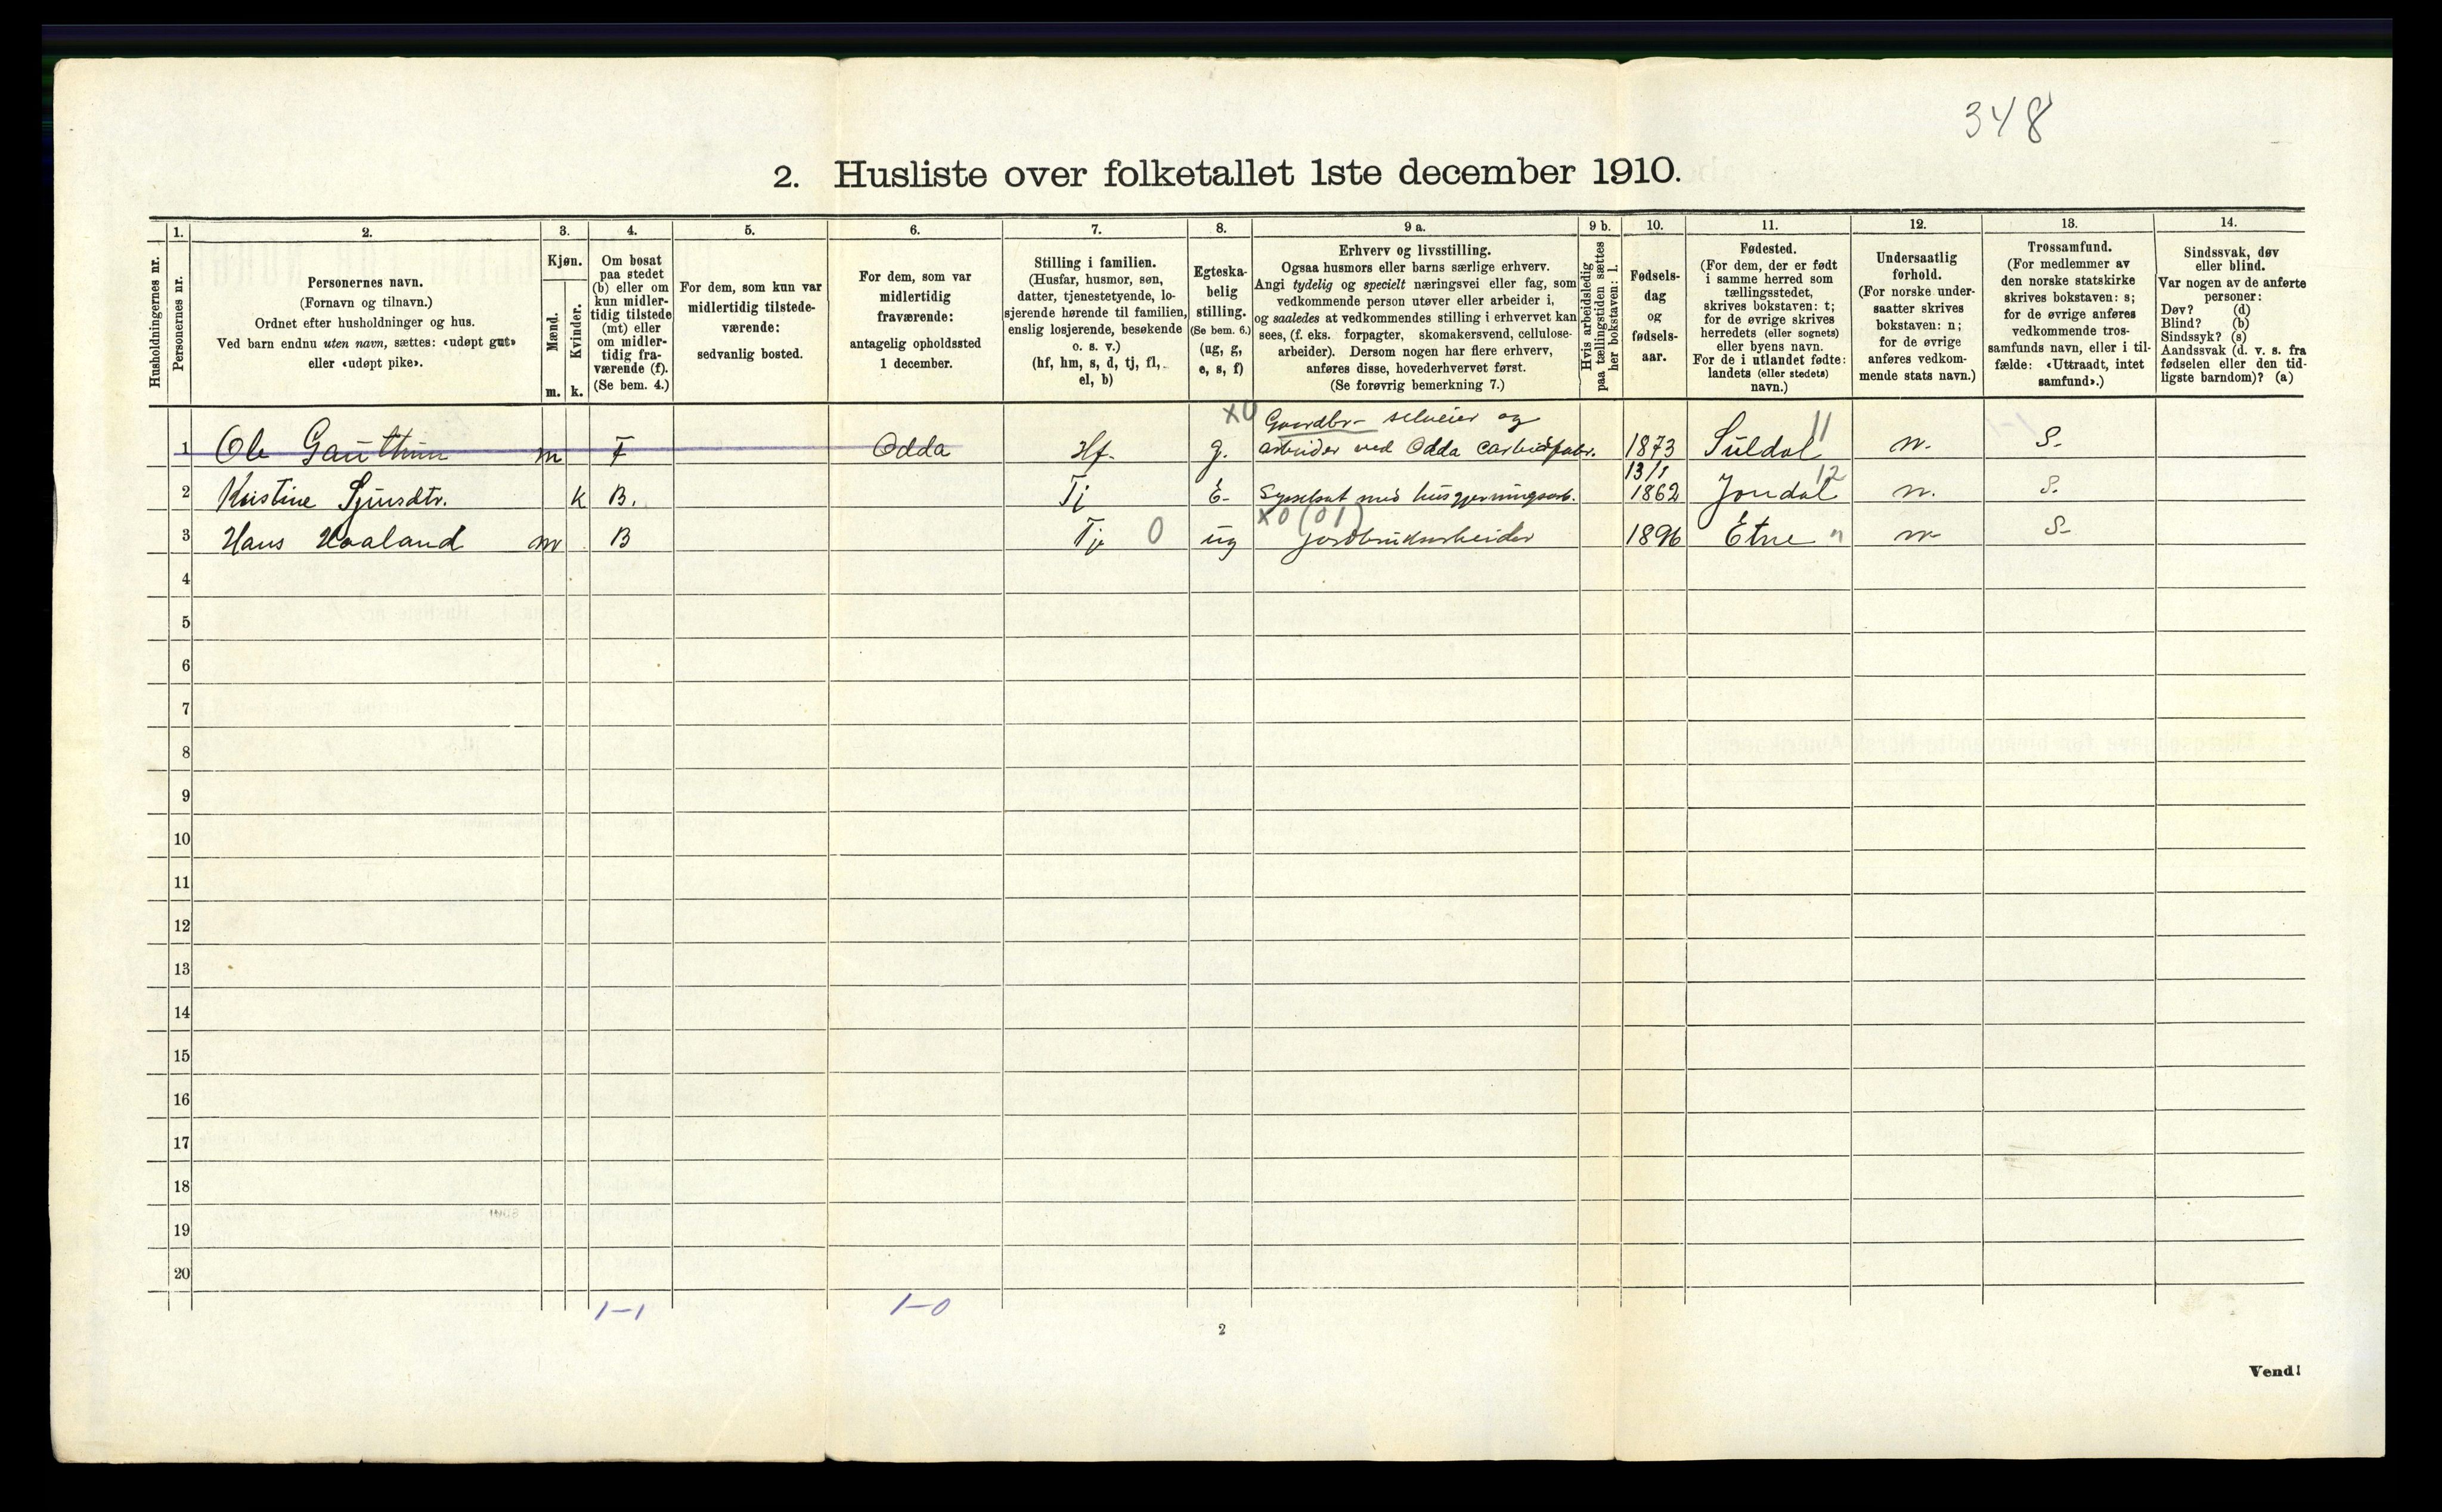 348
2. Husliste over folketallet 1ste december 1910.
1. 2. 3. 4. 5. 6. 7. 8. 9 a. 9 b. 10. 11. 12. 13. 14.
Husholdningernes nr.
Personernes nr.
Personernes navn.
(Fornavn og tilnavn.)
Ordnet efter husholdninger og hus.
Ved barn endnu uten navn, sættes: «udøpt gut»
eller «udøpt pike».
Kjøn.
Mænd.
Kvinder.
m. k.
Om bosat
paa stedet
(b) eller om
kun midler-
tidig tilstede
(mt) eller
om midler-
tidig fra-
værende (f).
(Se bem. 4.)
For dem, som kun var
midlertidig tilstede-
værende:
sedvanlig bosted.
For dem, som var
midlertidig
fraværende:
antagelig opholdssted
1 december.
Stilling i familien.
(Husfar, husmor, søn,
datter, tjenestetyende, lo-
sjerende hørende til familien,
enslig losjerende, besøkende
o. s. v.)
(hf, hm, s, d, tj, fl,
el, b)
Egteska-
belig
stilling.
(Se bem. 6.)
(ug, g,
e, s, f)
Erhverv og livsstilling.
Ogsaa husmors eller barns særlige erhverv.
Angi tydelig og specielt næringsvei eller fag, som
vedkommende person utøver eller arbeider i,
og saaledes at vedkommendes stilling i erhvervet kan
sees, (f. eks. forpagter, skomakersvend, cellulose-
arbeider). Dersom nogen har flere erhverv,
anføres disse, hovederhvervet først.
(Se forøvrig bemerkning 7.)
Hvis arbeidsledig
paa tællingstiden sættes
her bokstaven: l.
Fødsels-
dag
og
fødsels-
aar.
Fødested.
(For dem, der er født
i samme herred som
tællingsstedet,
skrives bokstaven: t;
for de øvrige skrives
herredets (eller sognets)
eller byens navn.
For de i utlandet fødte:
landets (eller stedets)
navn.)
Undersaatlig
forhold.
(For norske under-
saatter skrives
bokstaven: n;
for de øvrige
anføres vedkom-
mende stats navn.)
Trossamfund.
(For medlemmer av
den norske statskirke
skrives bokstaven: s;
for de øvrige anføres
vedkommende tros-
samfunds navn, eller i til-
fælde: «Uttraadt, intet
samfund».)
Sindssvak, døv
eller blind.
Var nogen av de anførte
personer:
Døv? (d)
Blind? (b)
Sindssyk? (s)
Aandssvak (d. v. s. fra
fødselen eller den tid-
ligste barndom)? (a)
X0 Gaardbr- selveier og 11
1 Ole m F Odda Hf. g. arbeider ved Odda Carbidfabr. 1873 Suldal n. S.
13/1 12
2 Kristine Sjursdtr. k B. Tj E- Sysselsat med husgjerningsarb. 1862 Jondal n. S.
X0 (01)
3 Hans Haaland m B Tj 0 ug jordbruksarbeider 1896 Etne " n S-
4
5
6
7
8
9
10
11
12
13
14
15
16
17
18
19
20
1-1 1-0
2
Vend!